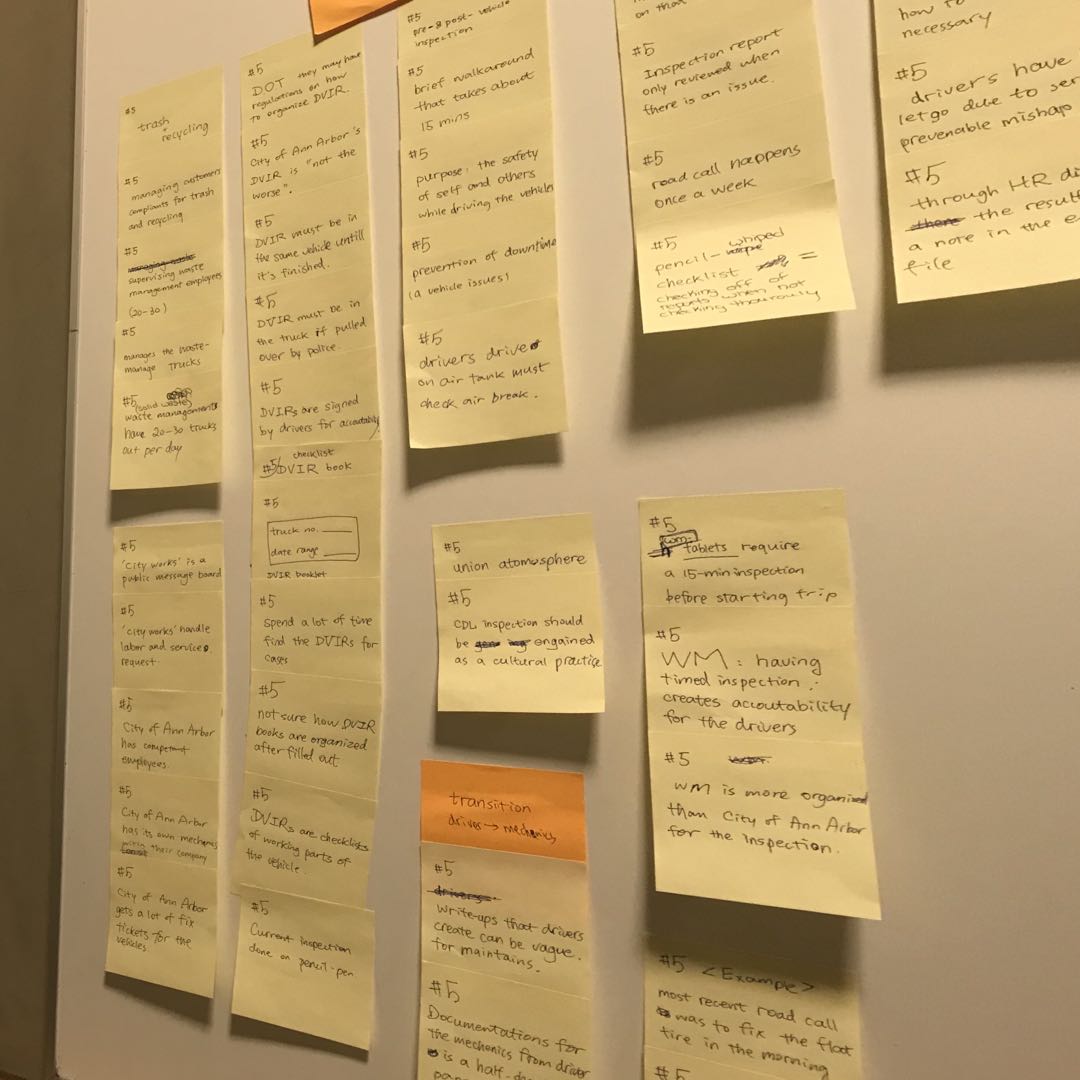 #5
trash
+
recycling
#5
managing customers
complaints for trash
and recycling
#5
supervising waste
management employees
(20-30)
#5
manages the waste-
manage trucks
#5
(solid waste)
waste management
have 20-30 trucks
out per day
#5
'City works' is a
public message board
#5
'city works' handle
labor and service
request
#5
City of Ann Arbor
has competent
employees.
#5
City of Ann Arbor
has its own mechanics
within their company
#5
City of Ann Arbor
gets a lot of fix
tickets for the
vehicles
#5
DOT they may have
regulations on how
to organize DVIR.
#5
City of Ann Arbor's
DVIR is "not the
worse".
#5
DVIR must be in
the same vehicle untill
it's finished.
#5
DVIR must be in
the truck if pulled
over by police.
#5
DVIRs are signed
by drivers for accoutability
checklist
#5 DVIR book
#5
truck no.
date range
DVIR booklet
#5
Spend a lot of time
find the DVIRs for
cases
#5
not sure how DVIR
books are organized
after filled out
#5
DVIRs are checklists
of working parts of
the vehicle.
#5
Current inspection
done on pencil-pen
#5
pre-&post-vehicle
inspection
#5
brief walkaround
that takes about
15 mins
#5
purpose: the safety
of self and others
while driving the vehicle
#5
prevention of downtime
(a vehicle issues)
#5
drivers drive
on air tank must
check air break.
#5
union atomosphere
#5
CDL inspection should
be engained
as a cultural practise
transition
drives → mechanics
#5
write-ups that drivers
create can be vague.
for maintains.
#5
Documentations for
the mechenics from driver
is a half-
on that
#5
Inspection report
only reviewed when
there is an issue.
#5
road call happens
once a week
#5
pencil-whiped
checklist =
checking off of
reports when not
checking thourouly
#5
WM
tablets require
a 15-min inspection
before starting trip
#5
WM: having
timed inspection
creates accoutability
for the drivers
#5
WM is more organized
than City of Ann Arbor
for the inspection.
#5 <Example>
most recent road call
was to fix the flat
tire in the morning
#5
how to
necessary
#5
drivers have
letgo due to
prevenable mishap
#5
through HR
the result
a note in the
file